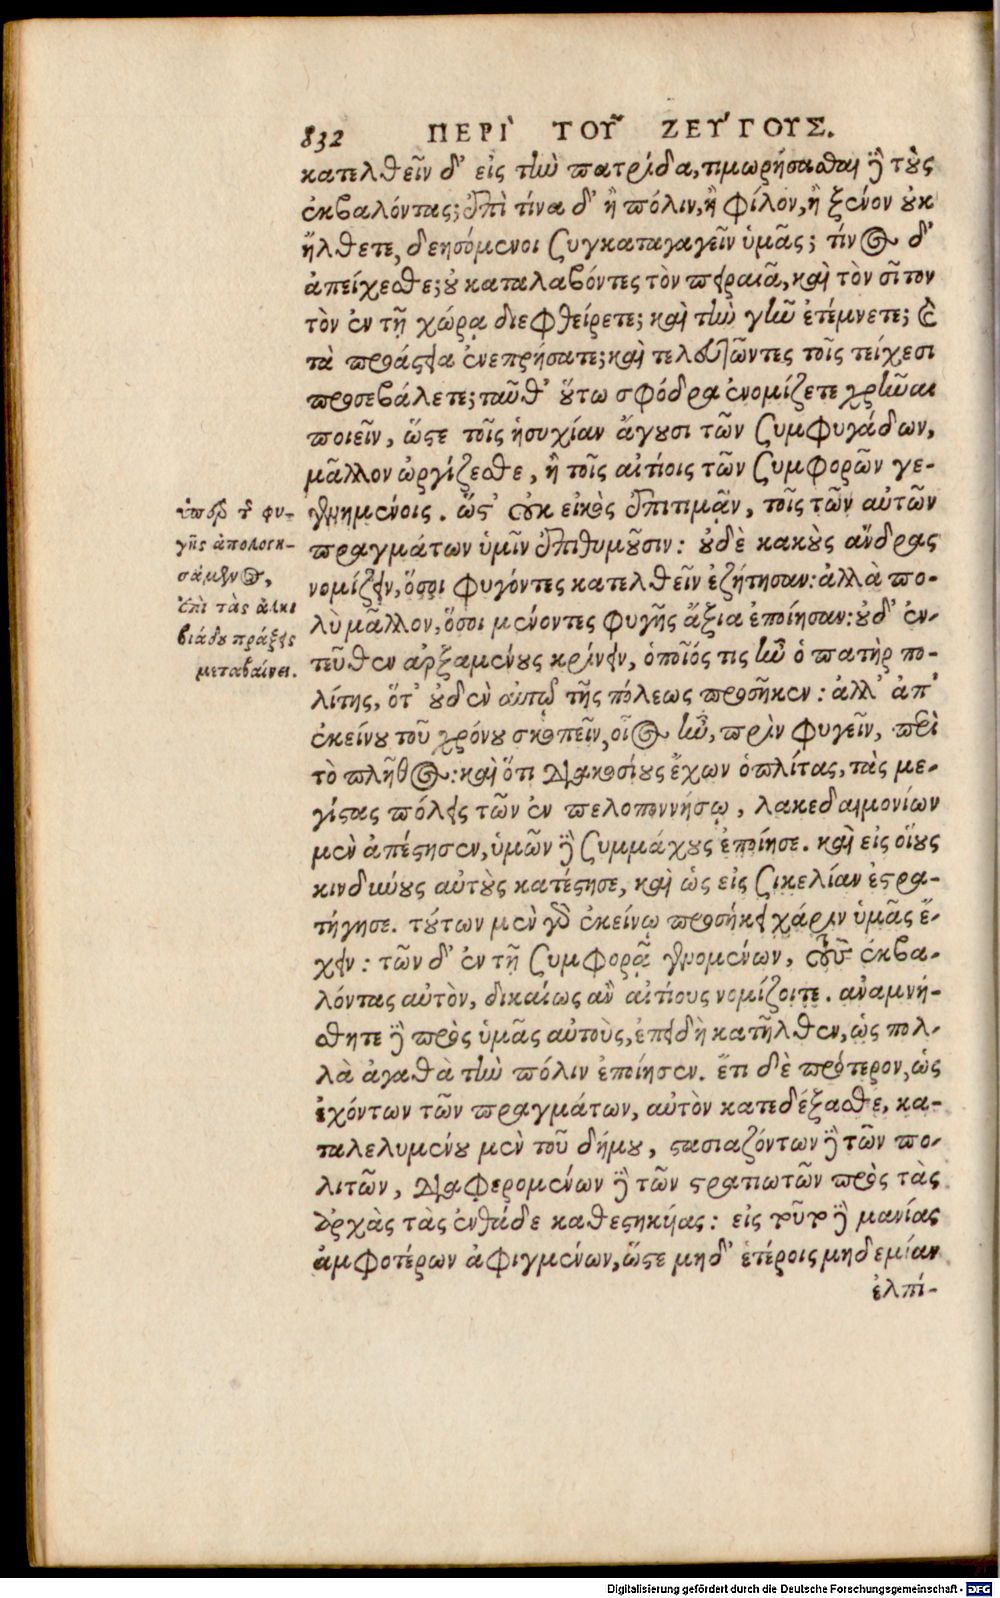 832 ΠΕΡΙ` ΤΟΥ~ ΖΕΥ'ΓΟΥΣ.
κατελθεῖν δ' εἰς τὴν πατρίδα, τιμωρήσασθαι δὲ τοὺς
ἐκβαλόντας; ἐπὶ τίνα δ' ἢ πόλιν, ἢ φίλον, ἢ ξένον οὐκ
ἤλθετε, δεησόμενοι συγκαταγαγεῖν ὑμᾶς; τίνος δ'
ἀπείχεσθε; οὐ καταλαβόντες τὸν πειραιᾶ, καὶ τὸν σῖτον
τὸν ἐν τῇ χώρᾳ διεφθείρετε; καὶ τὴν γῆν ἐτέμνετε; καὶ
τὰ προάστεια ἐνεπρήσατε; καὶ τελευτῶντες τοῖς τείχεσι
προσεβάλετε; ταῦθ' οὕτω σφόδρα ἐνομίζετε χρῆναι
ποιεῖν, ὥστε τοῖς ἡσυχίαν ἄγουσι τῶν συμφυγάδων,
μᾶλλον ὠργίζεσθε, ἢ τοῖς αἰτίοις τῶν συμφορῶν γε-
γενημένοις. ὥστ' οὐκ εἰκὸς ἐπιτιμᾶν, τοῖς τῶν αὐτῶν
πραγμάτων ὑμῖν ἐπιθυμοῦσιν: οὐδὲ κακοὺς ἄνδρας
νομίζειν, ὅσοι φυγόντες κατελθεῖν ἐζήτησαν: ἀλλὰ πο-
λὺ μᾶλλον, ὅσοι μένοντες φυγῆς ἄξια ἐποίησαν: οὐδ' ἐν-
τεῦθεν ἀρξαμένους κρίνειν, ὁποῖός τις ἦν ὁ πατὴρ πο-
λίτης, ὅτ' οὐδὲν αὐτῷ τῆς πόλεως προσῆκεν: ἀλλ' ἀπ'
ἐκείνου τοῦ χρόνου σκοπεῖν, οἷος ἦν, πρὶν φυγεῖν, περὶ
τὸ πλῆθος: καὶ ὅτι διακοσίους ἔχων ὁπλίτας, τὰς με-
γίστας πόλεις τῶν ἐν πελοποννήσῳ, λακεδαιμονίων
μὲν ἀπέστησεν, ὑμῶν δὲ συμμάχους ἐποίησε. καὶ εἰς οἵους
κινδύνους αὐτοὺς κατέστησε, καὶ ὡς εἰς σικελίαν ἐστρα-
τήγησε. τούτων μὲν γὰρ ἐκείνῳ προσήκει χάριν ὑμᾶς ἔ-
χειν: τῶν δ' ἐν τῇ συμφορᾷ γενομένων, τοὺς ἐκβα-
λόντας αὐτὸν, δικαίως ἂν αἰτίους νομίζοιτε. ἀναμνή-
σθητε δὲ πρὸς ὑμᾶς αὐτοὺς, ἐπειδὴ κατῆλθεν, ὡς πολ-
λὰ ἀγαθὰ τὴν πόλιν ἐποίησεν. ἔτι δὲ πρότερον, ὡς
ἐχόντων τῶν πραγμάτων, αὐτὸν κατεδέξασθε, κα-
ταλελυμένου μὲν τοῦ δήμου, στασιαζόντων δὲ τῶν πο-
λιτῶν, διαφερομένων δὲ τῶν στρατιωτῶν πρὸς τὰς
ἀρχὰς τὰς ἐνθάδε καθεστηκυίας: εἰς τοῦτο δὲ μανίας
ἀμφοτέρων ἀφιγμένων, ὥστε μηδ' ἑτέροις μηδεμίαν
ἐλπί-
ὑπὲρ τῆς φυ-
γῆς ἀπολογη-
σάμενος,
ἐπὶ τὰς ἀλκι
βιάδου πράξεις
μεταβαίνει.
Digitalisierung gefördert durch die Deutsche Forschungsgemeinschaft - DFG